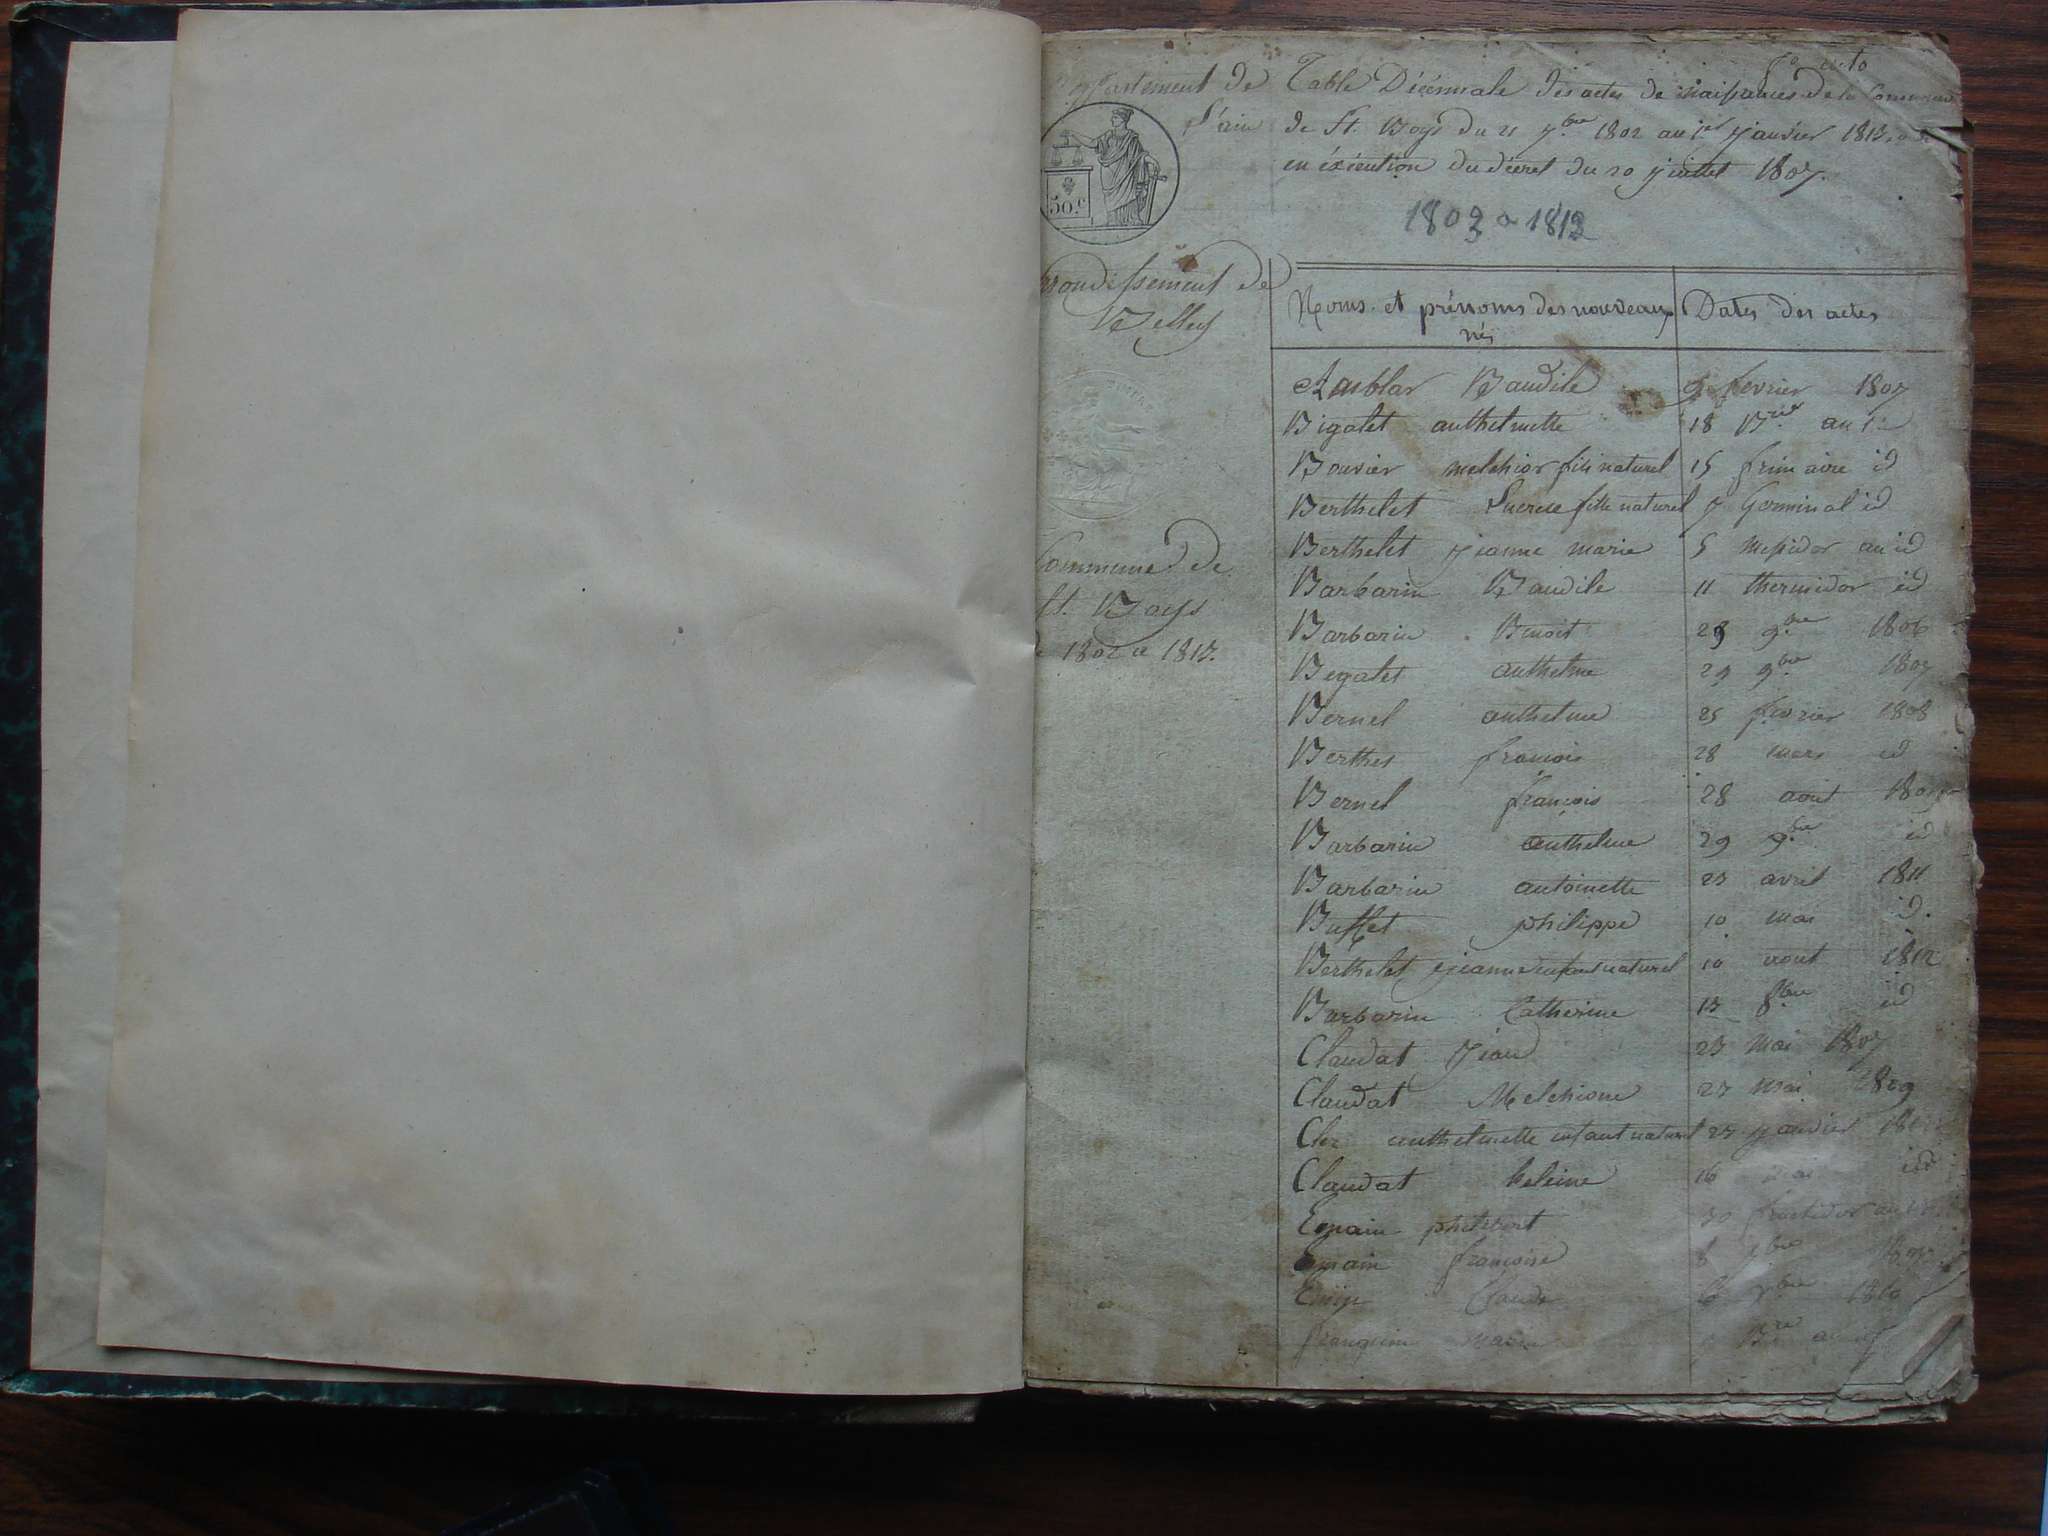 Département de l'ain
Table Décennale des actes de naissances de la Commune
de St. Boys du 21 7.bre 1802 au 1er Janvier 1813
en éxécution du décret du 20 juillet 1807.
1803 a 1812
50.c
arrondissement de
Belley
Commune de
St. Boys
de 1802 a 1813.
Noms et prénoms des nouveaux nés
Dates des actes
Baudile 9 fevrier 1807
Bigalet anthelmette 18 B.re an
Bouvier melchior fils naturel 15 frimaire id
Berthelet Lucrece fille naturel 7 Germinal id
Berthelet Jeanne marie 5 messidor an id
Barbarin Baudile 11 thermidor id
Barbarin Benoit 29 9.bre 1806
Begalet anthelme 29 9.bre 1807
Bernel anthelme 25 fevrier 1808
Berthet francois 28 mars id
Bernel francois 28 aout
Barbarin anthelme 29 9.bre id
Barbarin antoinette 23 avril 1811
Buffet philippe 10 mai id.
Berthelet jeanne enfant naturel 10 aout 1812
Barbarin Catherine 13 8.bre id
Claudat Jean 23 mai 1807
Claudat Melchione 27 mai 1809
anthelmette enfant naturel 27 janvier
Claudat heleine 16 mai id
Emain philibert 30 fructidor an
Emain francoise 8
Claude 1810
franquin